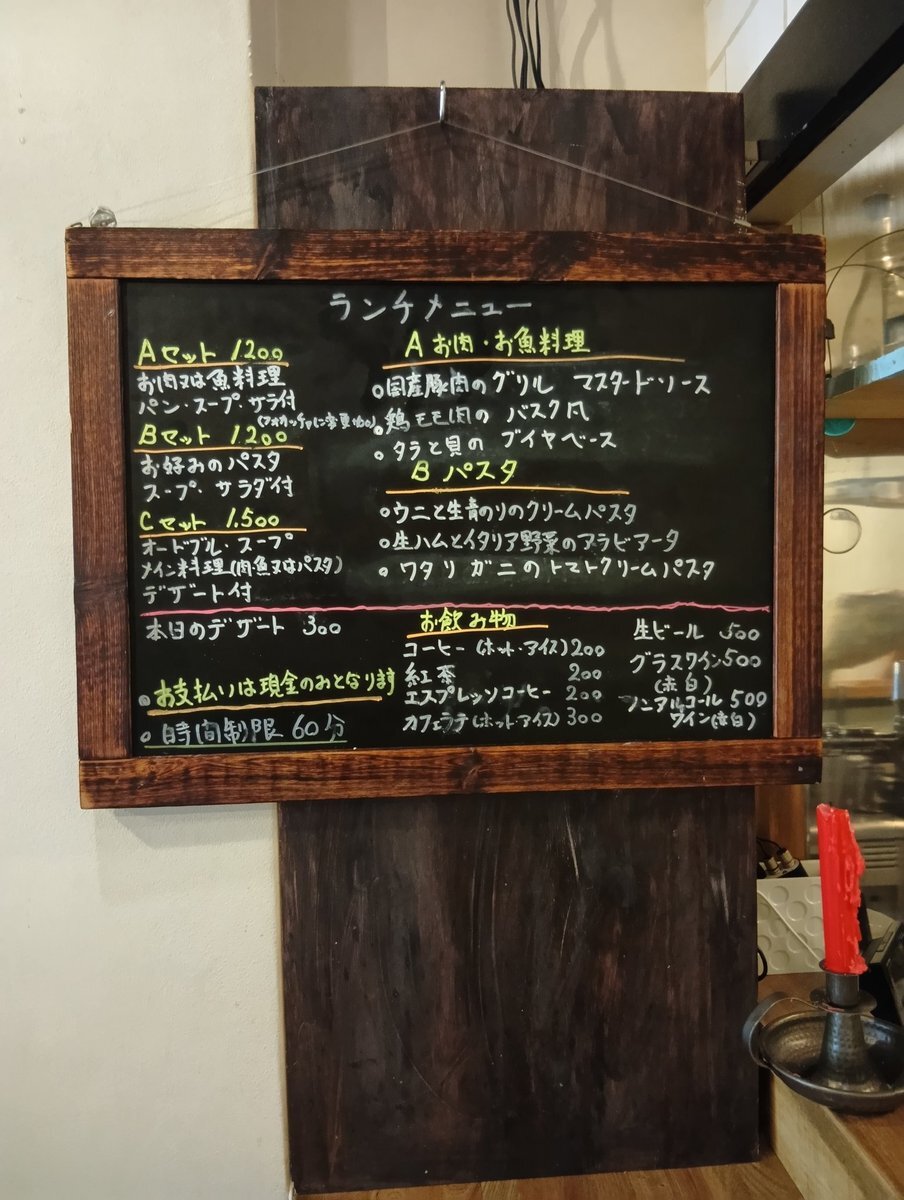 ランチメニュー
Aセット 1.200
お肉又は魚料理
パン・スープ・サラダ付
Bセット 1.200
お好みのパスタ
スープ・サラダ付
Cセット 1.500
オードブル・スープ
メイン料理(肉魚又はパスタ)
デザート付
A お肉・お魚料理
国産豚肉のグリル マスタードソース
鶏モモ肉の バスク風
タラと貝の ブイヤベース
B パスタ
ウニと生青のりのクリームパスタ
生ハムとイタリア野菜のアラビアータ
ワタリガニのトマトクリームパスタ
本日のデザート 300
お支払いは現金のみとなります
時間制限 60分
お飲み物
コーヒー(ホット・アイス)200
紅茶 200
エスプレッソコーヒー 200
カフェラテ(ホット・アイス) 300
生ビール 500
グラスワイン500
(赤白)
ノンアルコール 500
ワイン(赤白)